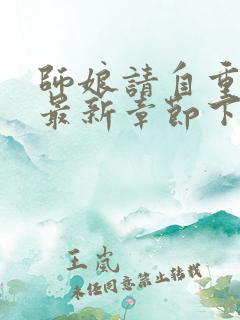 師娘請自重
最新章節下
王嵐
未經同意禁止轉載